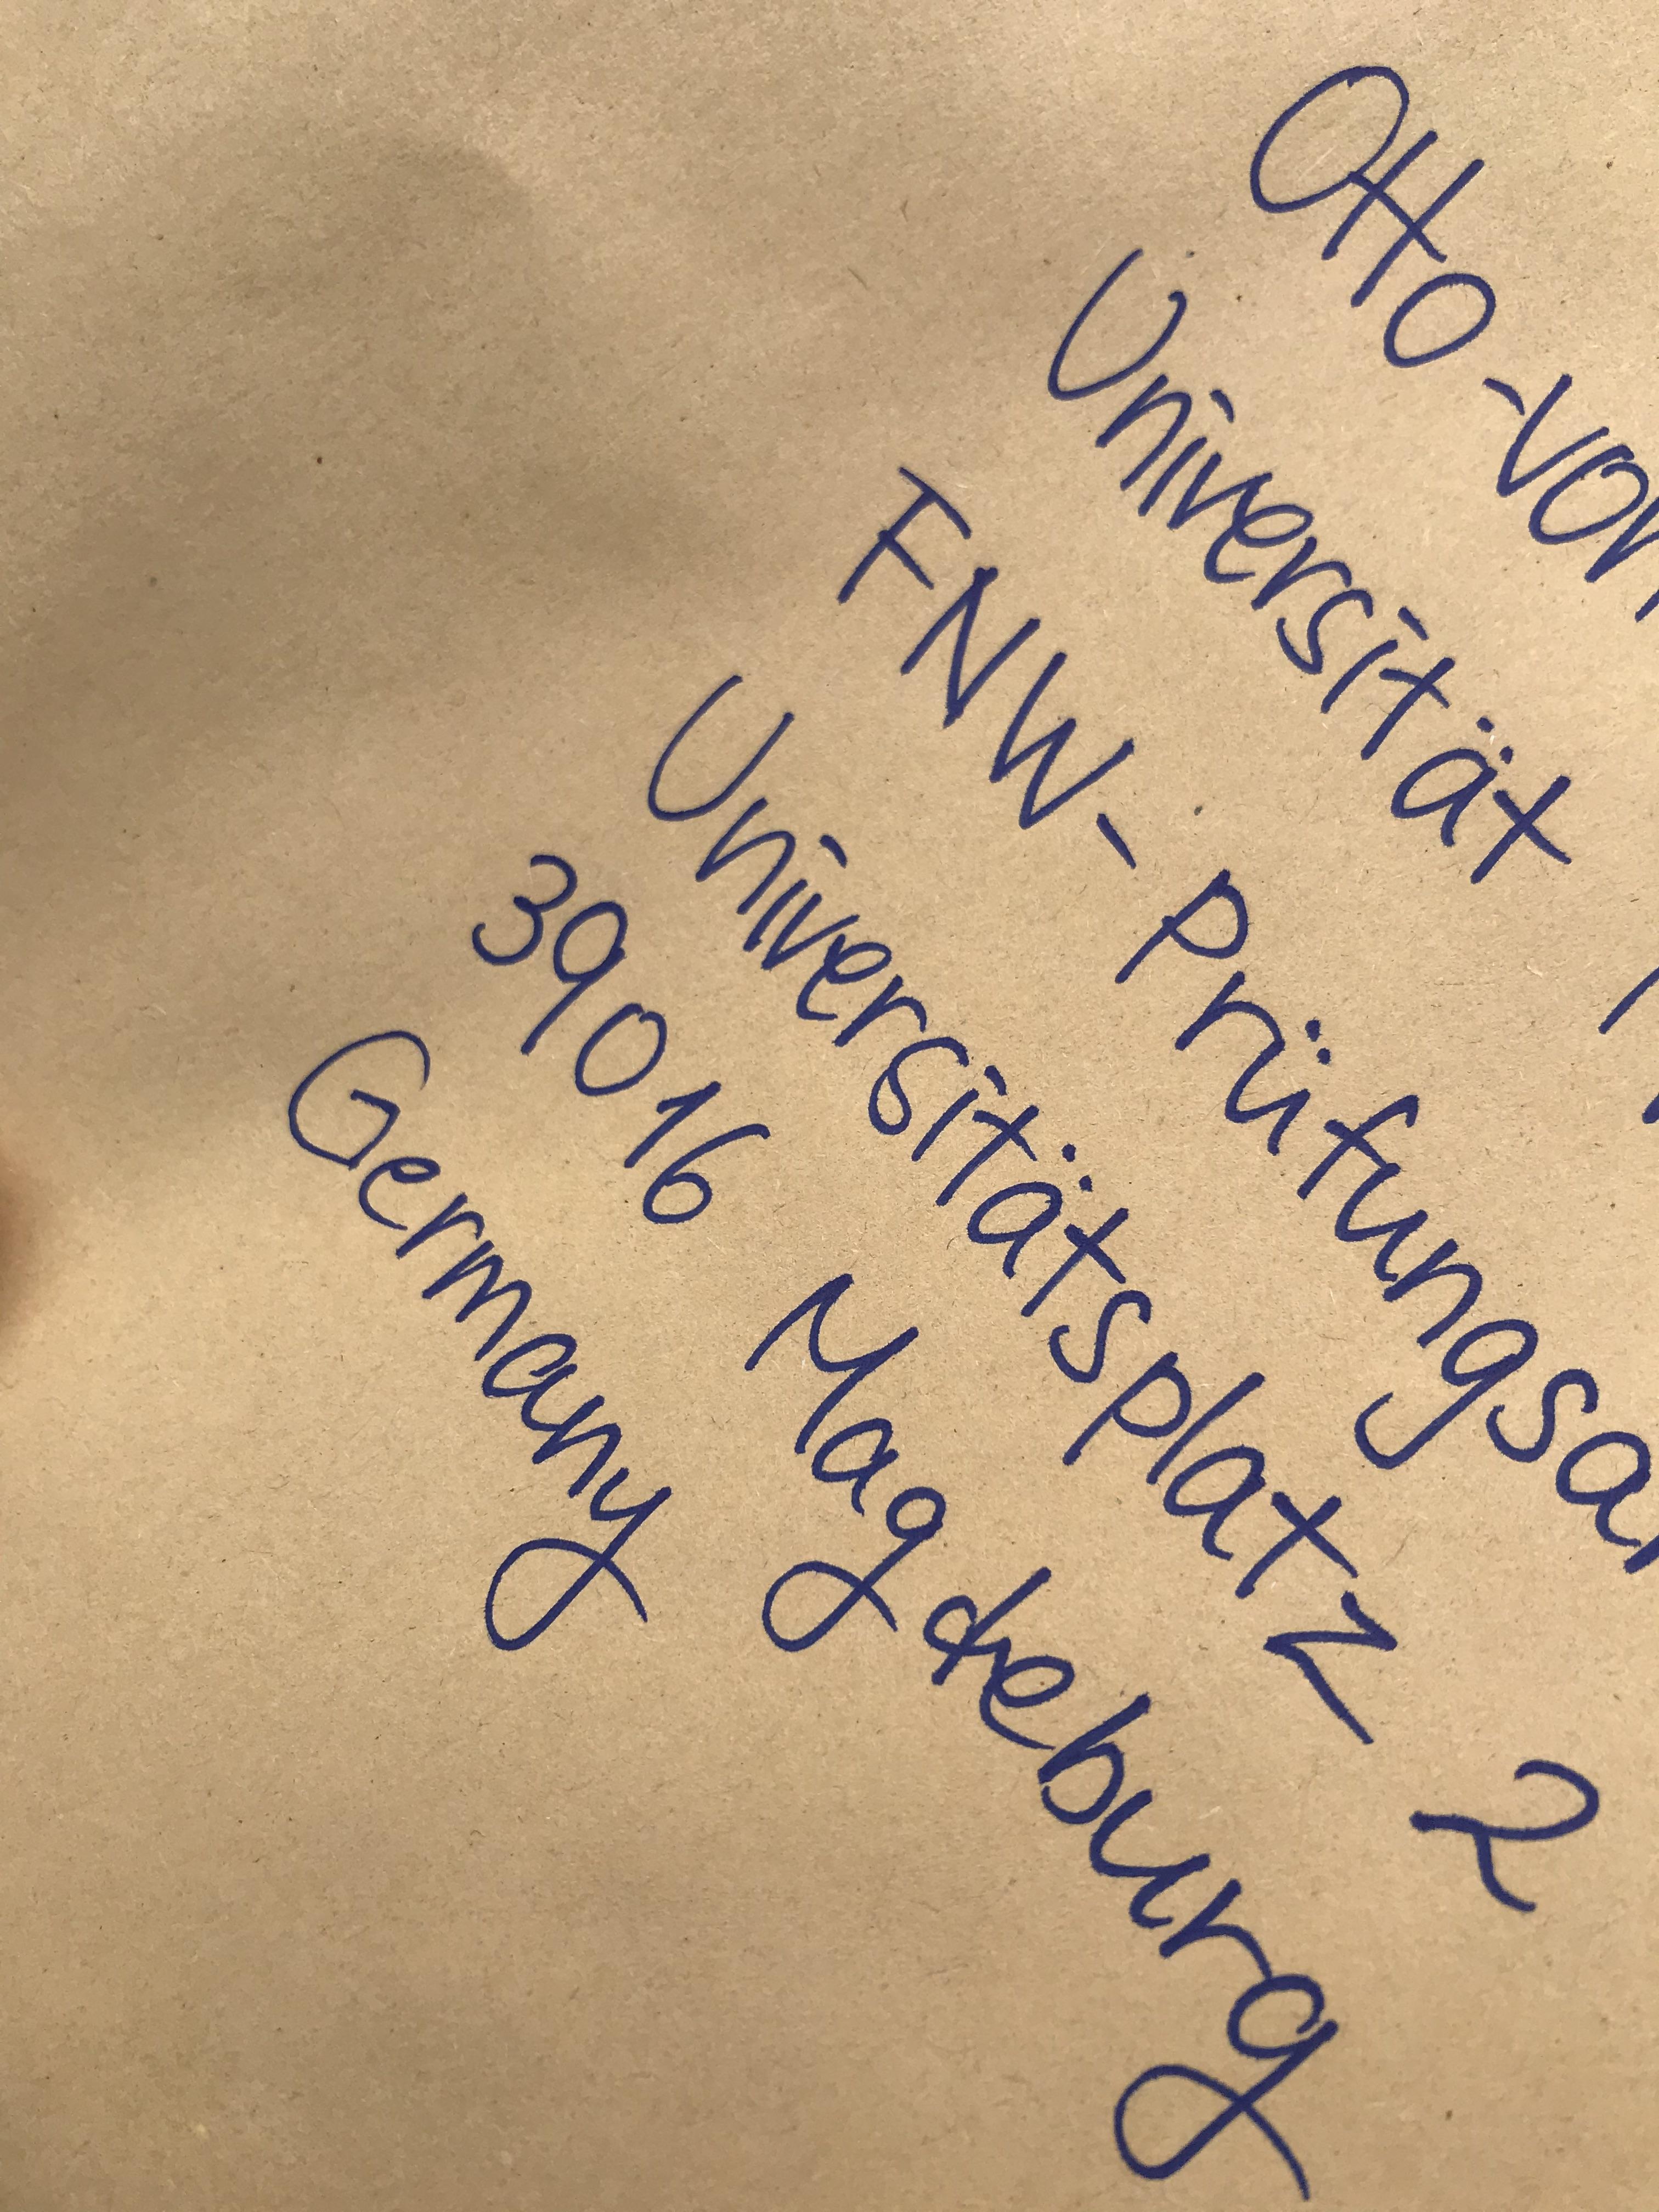 Otto-von
Universität
FNW-Prüfungsa
Universitätsplatz 2
39016 Magdeburg
Germany